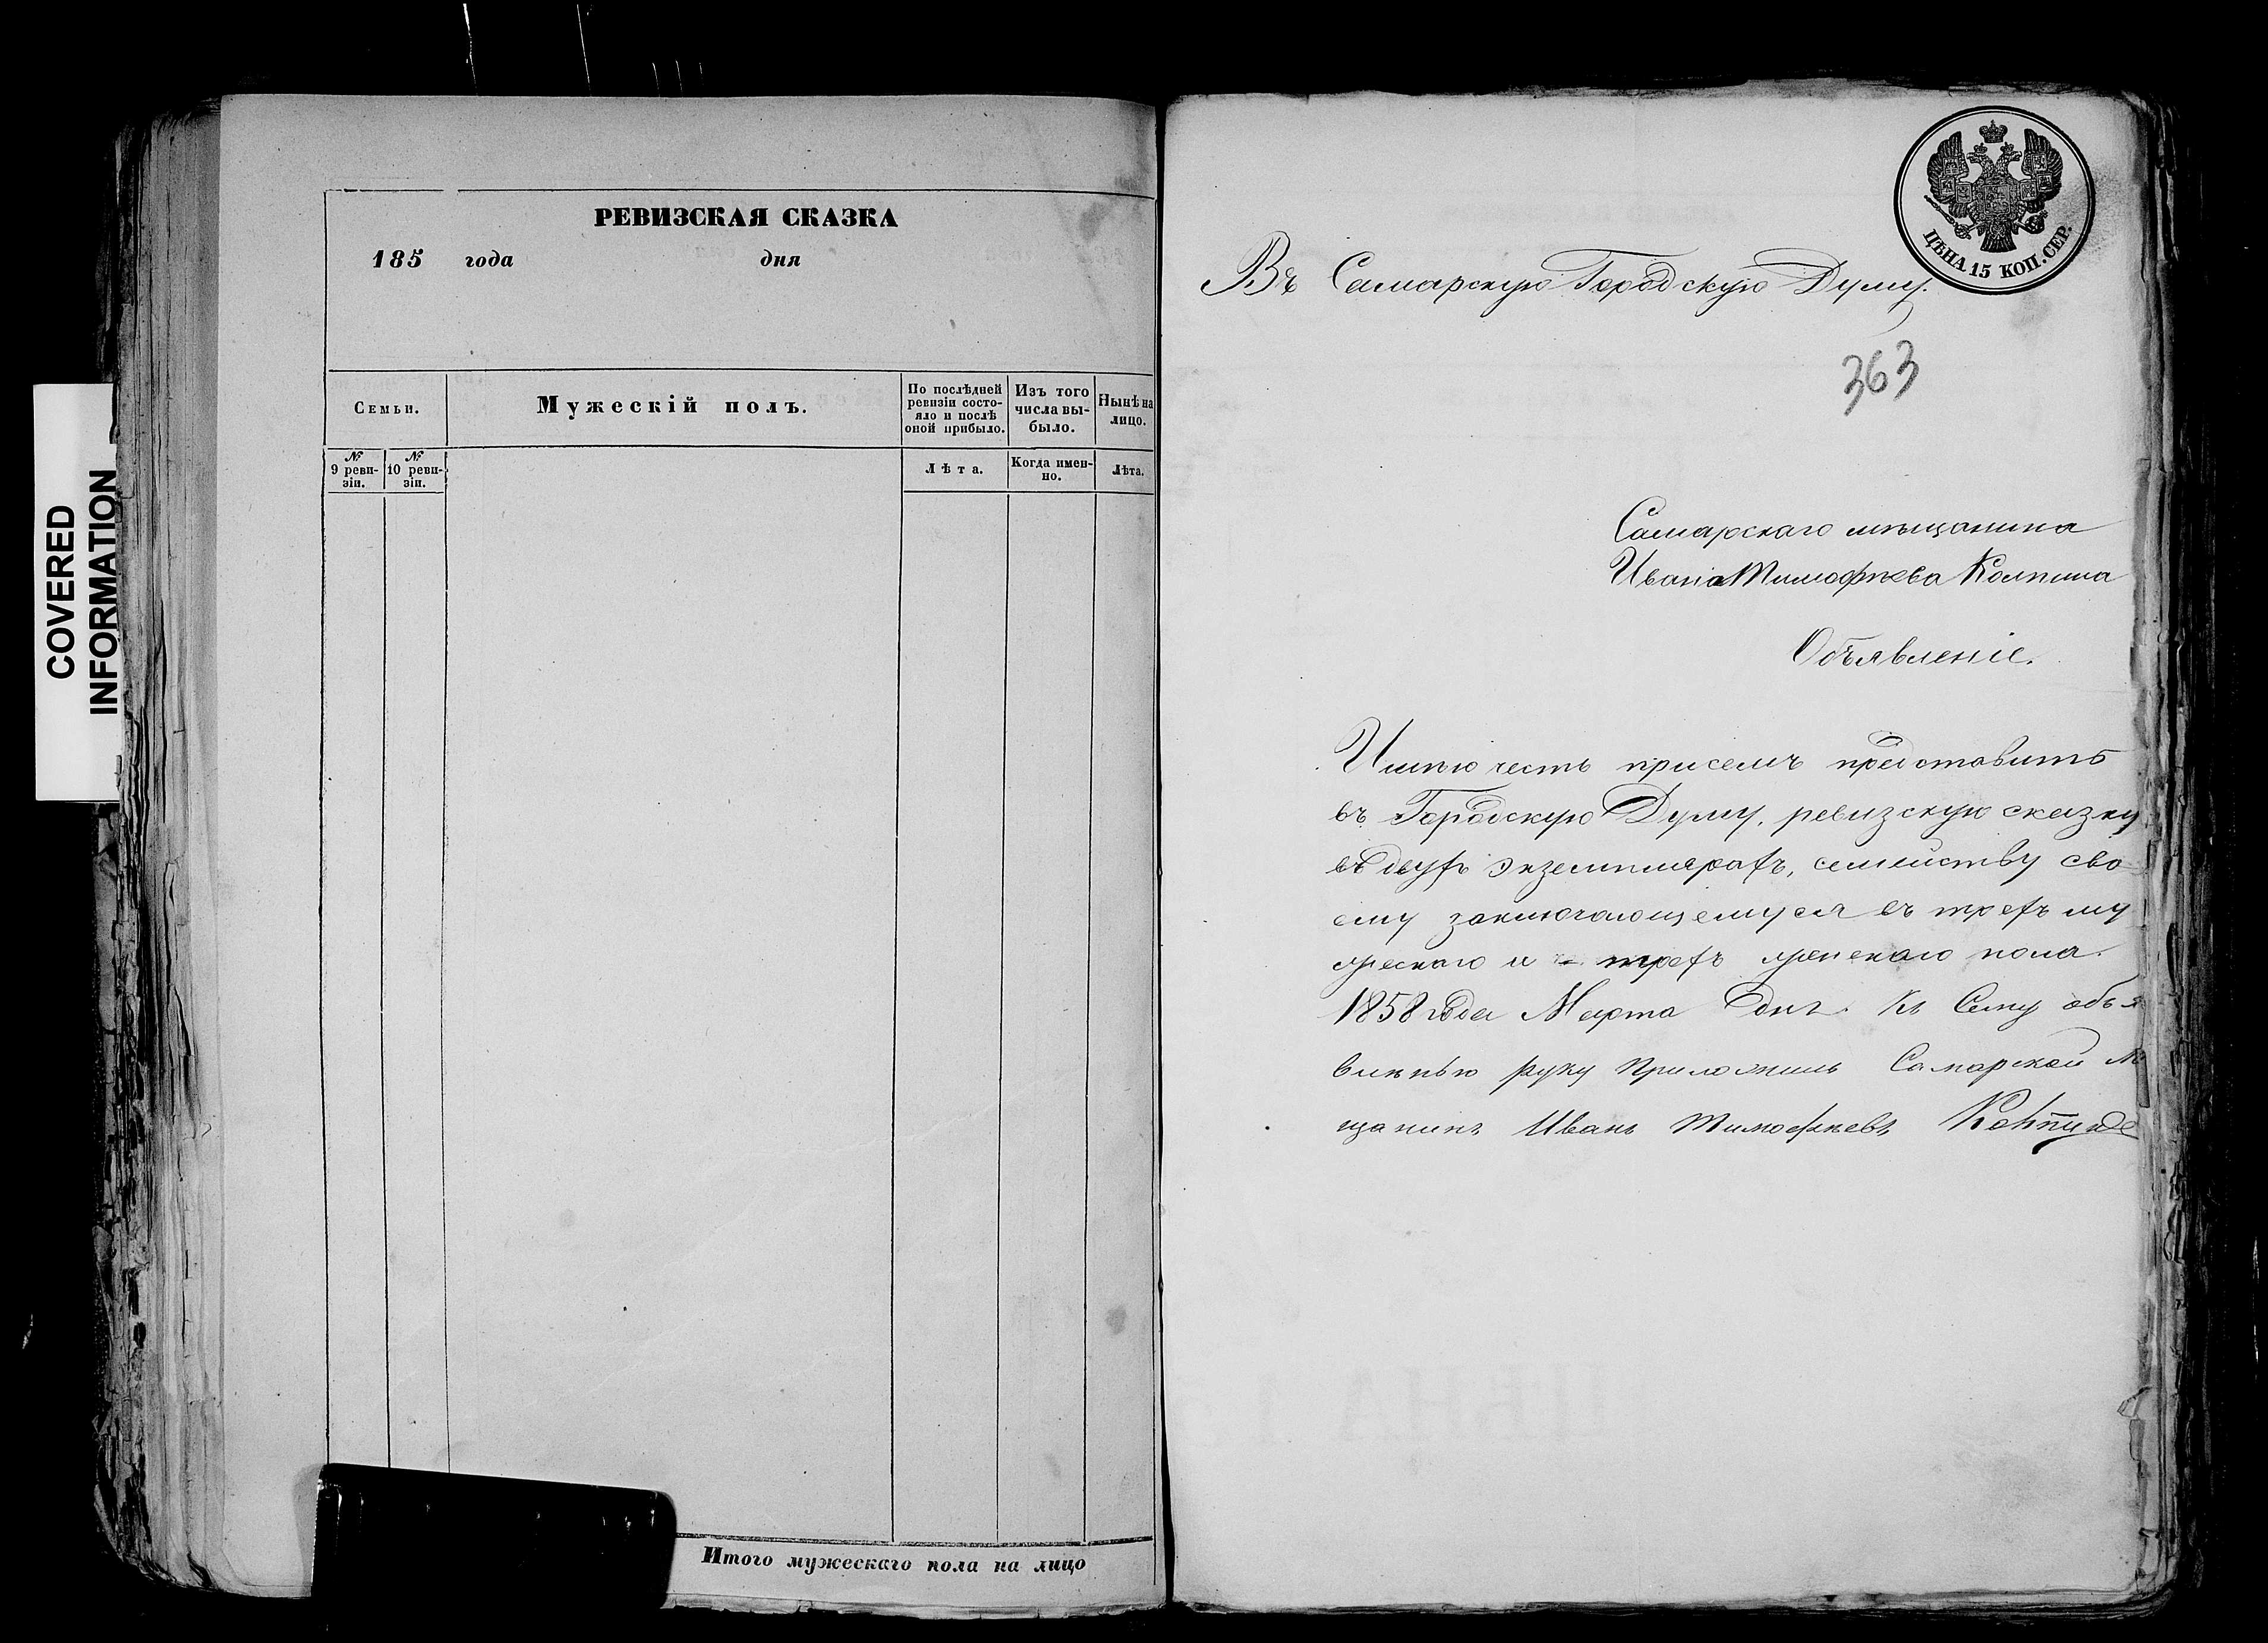 COVERED
INFORMATION
РЕВИЗСКАЯ СКАЗКА
185 года дня
Семьи.
Мужескій полъ.
По послѣдней
ревизіи состо-
яло и послѣ
оной прибыло.
Изъ того
числа вы-
было.
Нынѣ на
лицо.
№
9 реви-
зіи.
№
10 реви-
зіи.
Лѣта.
Когда имен-
но.
Лѣта.
Итого мужескаго пола на лицо
ЦѢНА 15 КОП. СЕР.
Въ Самарскую Городскую Думу.
363
Самарскаго мѣщанина
Ивана Тимофѣева
Объявленіе.
Имѣю честь присемъ представить
въ Городскую Думу, ревизскую сказку
въ двухъ экземплярахъ, семейству сво-
ему заключающемуся въ трехъ му
жескаго и трехъ женскаго пола.
1858 года Марта дня. Къ Сему объя
вленью руку приложилъ Самарской мѣ
щанинъ Иванъ Тимофѣевъ